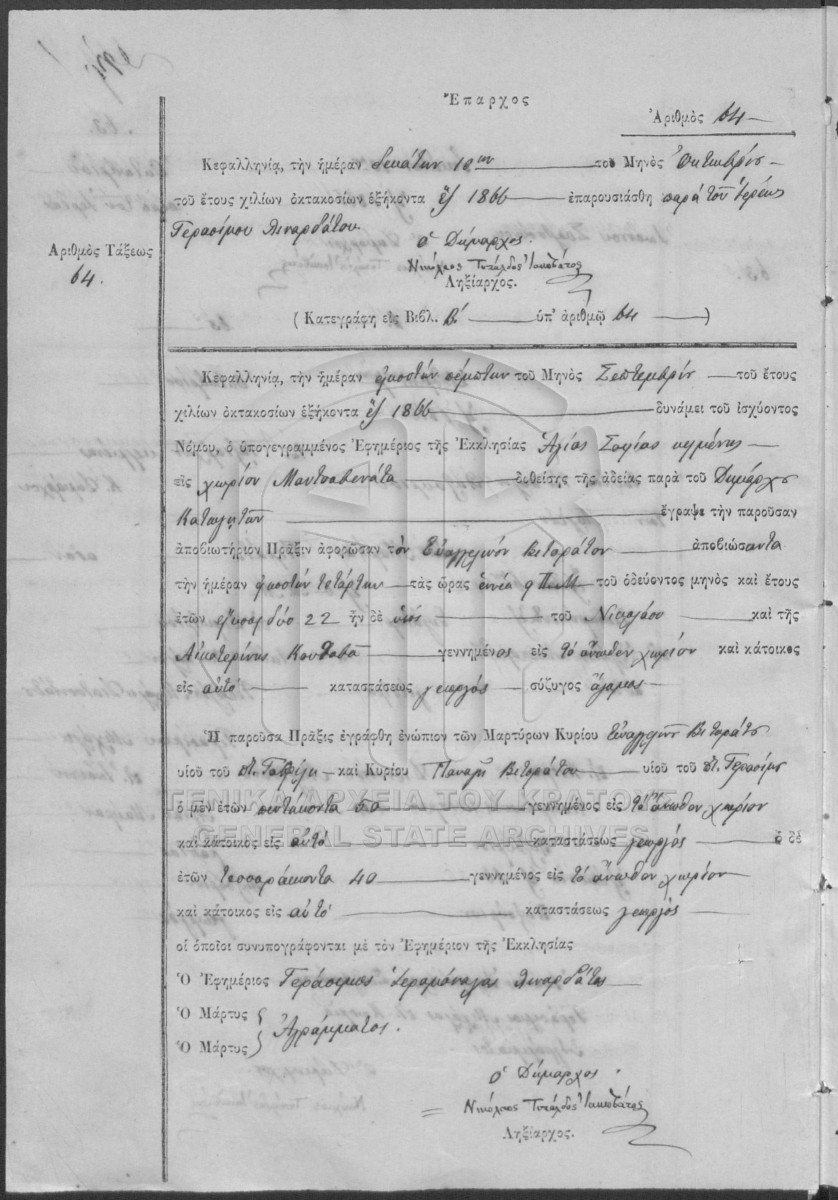 Ἔπαρχος
Ἀριθμὸς 64
Κεφαλληνίᾳ, τὴν ἡμέραν δεκάτην 10ην τοῦ Μηνὸς Ὀκτωβρίου
τοῦ ἔτους χιλίων ὀκτακοσίων ἑξήκοντα ἓξ 1866 ἐπαρουσιάσθη παρὰ τοῦ ἱερέως
Γερασίμου Λιναρδάτου
Ὁ Δήμαρχος.
Νικόλαος Τυπάλδος Ἰακωβάτος
Ληξίαρχος.
Ἀριθμὸς Τάξεως
64.
(Κατεγράφη εἰς Βιβλ. Β΄ ὑπ' ἀριθμῷ 64)
Κεφαλληνίᾳ, τὴν ἡμέραν εἰκοστήν πέμπτην τοῦ Μηνὸς Σεπτεμβρίου τοῦ ἔτους
χιλίων ὀκτακοσίων ἑξήκοντα ἓξ 1866 δυνάμει τοῦ ἰσχύοντος
Νόμου, ὁ ὑπογεγραμμένος Ἐφημέριος τῆς Ἐκκλησίας Ἁγίας Σοφίας κειμένης
εἰς χωρίον Μαντζαβινάτα δοθείσης τῆς ἀδείας παρὰ τοῦ Δημάρχου
ἔγραψε τὴν παροῦσαν
ἀποβιωτήριον Πρᾶξιν ἀφορῶσαν τὸν Εὐαγγελινόν Βιτοράτον ἀποβιώσαντα
τὴν ἡμέραν εἰκοστήν τετάρτην τὰς ὥρας ἐννέα 9 Π.Μ τοῦ ὁδεύοντος μηνὸς καὶ ἔτους
ἐτῶν εἴκοσι δύο 22 ἦν δὲ υἱός τοῦ Νικολάου καὶ τῆς
Αἰκατερίνης γεννημένος εἰς τὸ ἄνωθεν χωρίον καὶ κάτοικος
εἰς αὐτό καταστάσεως γεωργός σύζυγος ἄγαμος
Ἡ παροῦσα Πρᾶξις ἐγράφθη ἐνώπιον τῶν Μαρτύρων Κυρίου Εὐαγγελινοῦ Βιτοράτου
υἱοῦ τοῦ καὶ Κυρίου Παναγῆ Βιτοράτου υἱοῦ τοῦ Γερασίμου
ὁ μὲν ἐτῶν πεντήκοντα 50 γεννημένος εἰς τὸ ἄνωθεν χωρίον
καὶ κάτοικος εἰς αὐτό καταστάσεως γεωργός ὁ δὲ
ἐτῶν τεσσαράκοντα 40 γεννημένος εἰς τὸ ἄνωθεν χωρίον
καὶ κάτοικος εἰς αὐτό καταστάσεως γεωργός
οἱ ὁποῖοι συνυπογράφονται μὲ τὸν Ἐφημέριον τῆς Ἐκκλησίας
Ὁ Ἐφημέριος Γεράσιμος ἱερομόναχος Λιναρδάτος
Ὁ Μάρτυς
Ἀγράμματος.
Ὁ Μάρτυς
Ὁ Δήμαρχος.
Νικόλαος Τυπάλδος Ἰακωβάτος
Ληξίαρχος.
ΓΕΝΙΚΑ ΑΡΧΕΙΑ ΤΟΥ ΚΡΑΤΟΥΣ
GENERAL STATE ARCHIVES